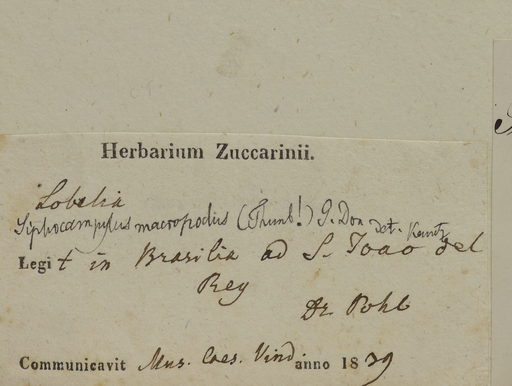 Herbarium Zuccarinii.
Lobelia
Siphocampylus macropodus (Thunb!) G. Don det. Kanitz
Legit in Brasilia ad S. Joao del
Rey
Dr. Pohl
Communicavit Mus. Caes. Vind anno 1839